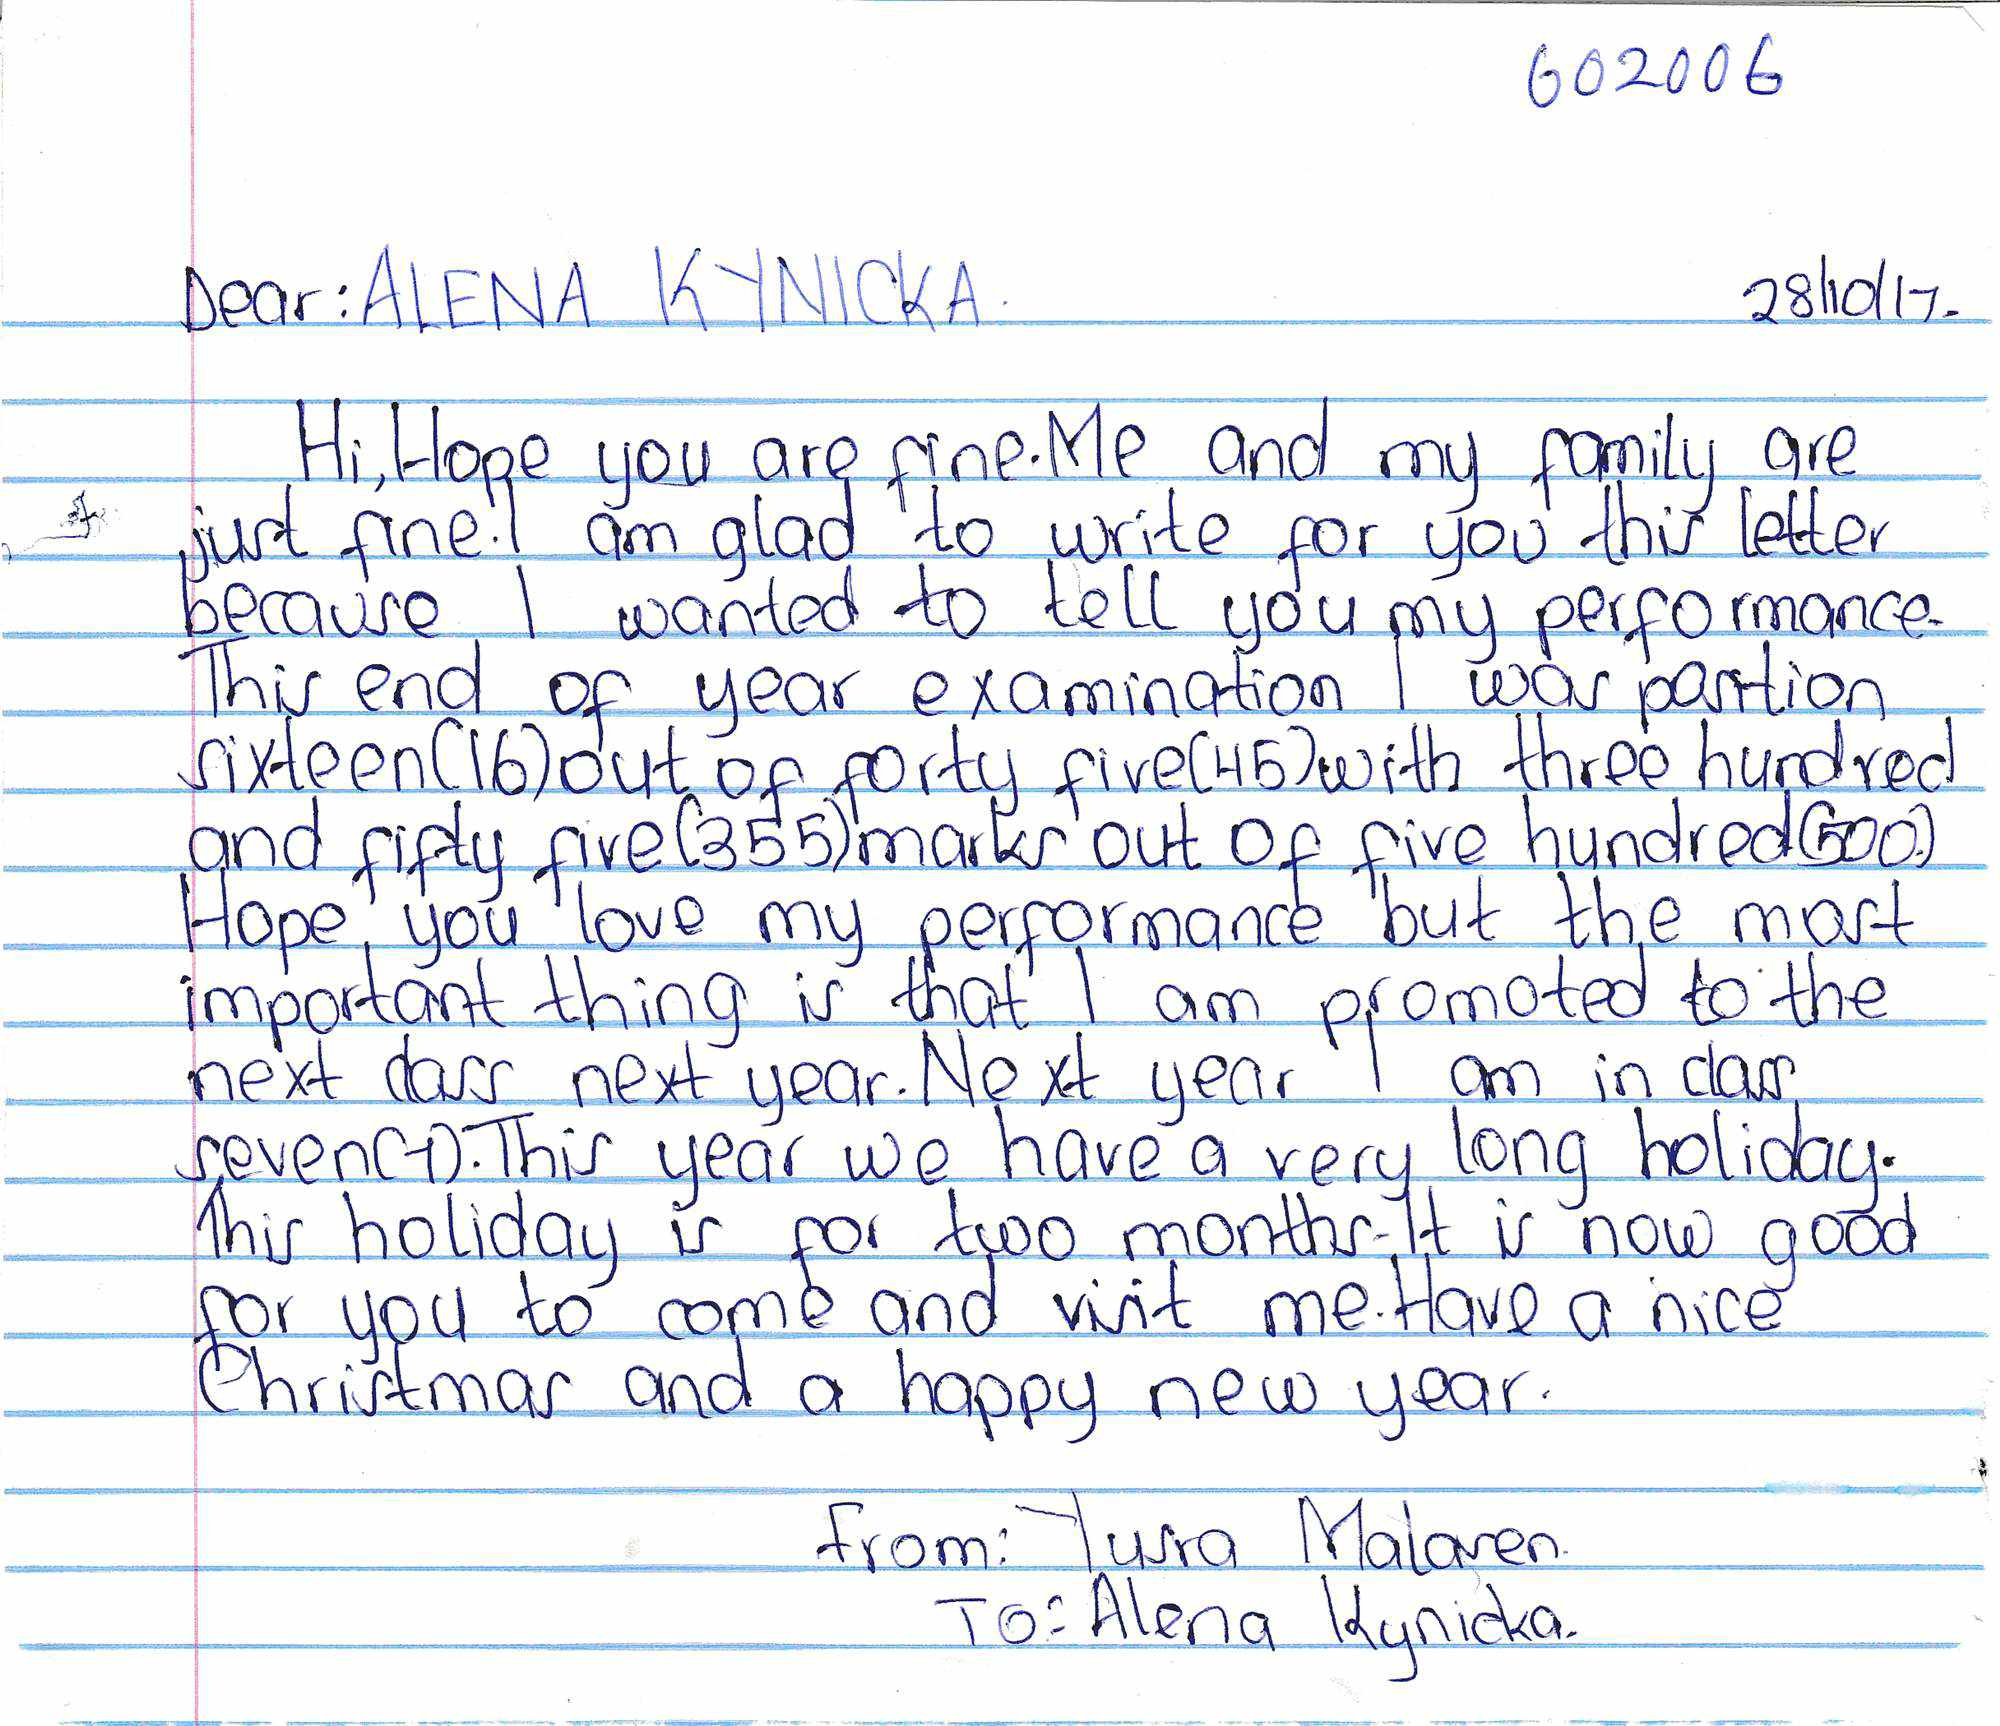 602006
Dear: ALENA KYNICKA. 28/10/17.
Hi, Hope you are fine. Me and my family are
just fine. I am glad to write for you this letter
because I wanted to tell you my performance.
This end of year examination I was position
sixteen(16) out of forty five(45) with three hundred
and fifty five(355) marks out of five hundred(500.)
Hope you love my performance but the most
important thing is that I am promoted to the
next class next year. Next year I am in class
seven(7). This year we have a very long holiday.
This holiday is for two months. It is now good
for you to come and visit me. Have a nice
Christmas and a happy new year.
From: Yusra Malaren.
To: Alena Kynicka.